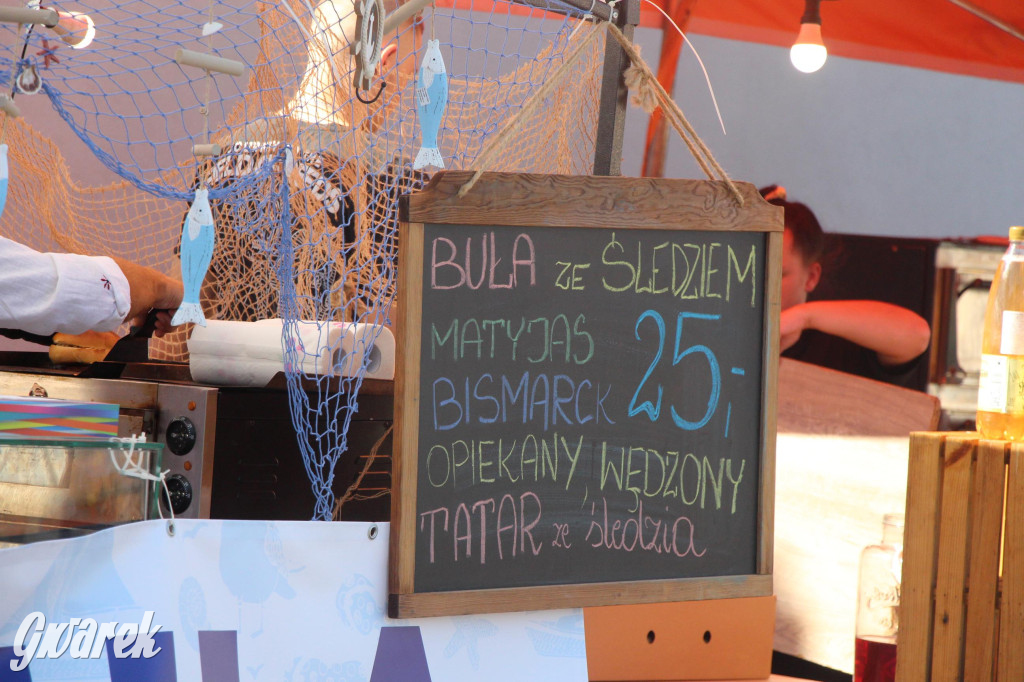 BUŁA ze ŚLEDZIEM
MATYJAS
BISMARCK
25,-
OPIEKANY, WĘDZONY
TATAR ze śledzia
Gwarek